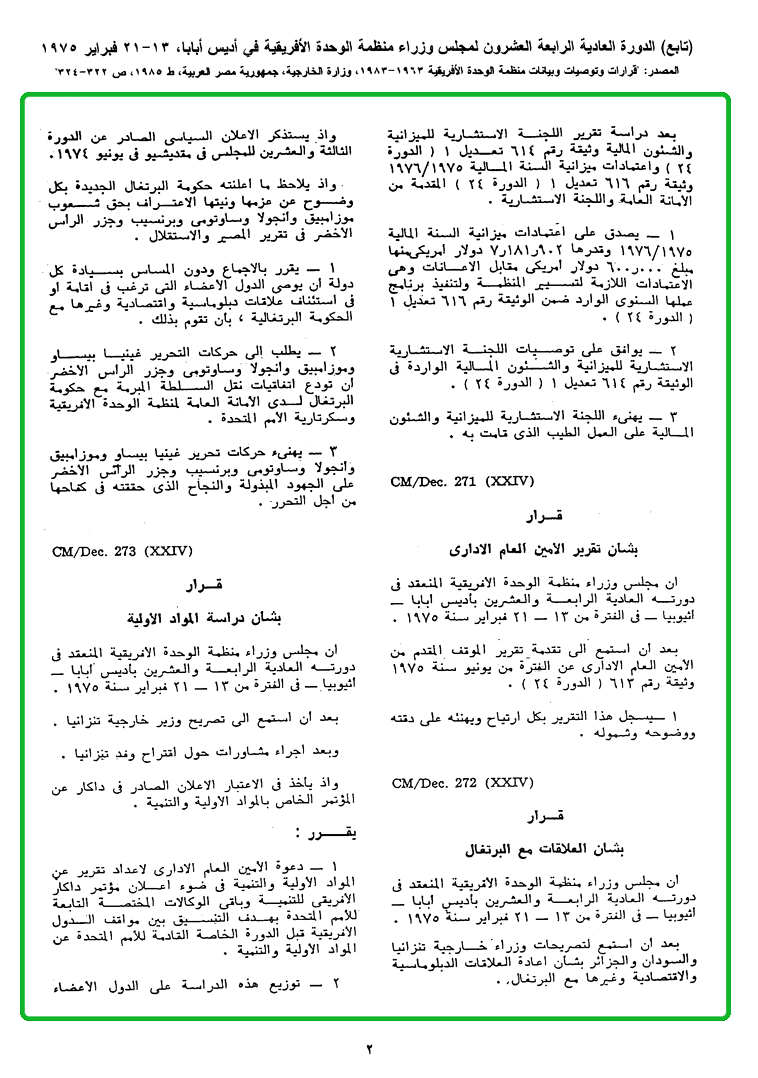 (تابع) الدورة العادية الرابعة العشرون لمجلس وزراء منظمة الوحدة الأفريقية في أديس أبابا، ١٣-٢١ فبراير ١٩٧٥
المصدر: "قرارات وتوصيات وبيانات منظمة الوحدة الأفريقية ١٩٦٣-١٩٨٣، وزارة الخارجية، جمهورية مصر العربية، ط ١٩٨٥، ص ٣٢٢-٣٢٤"
بعد دراسة تقرير اللجنة الاستشارية للميزانية
والشئون المالية وثيقة رقم ٦١٤ تعديل ١ ( الدورة
٢٤ ) واعتمادات ميزانية السنة المالية ١٩٧٦/١٩٧٥
وثيقة رقم ٦١٦ تعديل ١ ( الدورة ٢٤ ) المقدمة من
الأمانة العامة واللجنة الاستشارية .
١ — يصدق على اعتمادات ميزانية السنة المالية
١٩٧٦/١٩٧٥ وقدرها ٧٫١٨١٫٩٠٢ دولار أمريكى منها
مبلغ ٦٠٠٫٠٠٠ دولار أمريكى مقابل الاعانات وهى
الاعتمادات اللازمة لتسيير المنظمة ولتنفيذ برنامج
عملها السنوى الوارد ضمن الوثيقة رقم ٦١٦ تعديل ١
( الدورة ٢٤ ) .
٢ — يوافق على توصيات اللجنة الاستشارية
الاستشارية للميزانية والشئون المالية الواردة فى
الوثيقة رقم ٦١٤ تعديل ١ ( الدورة ٢٤ ) .
٣ — يهنىء اللجنة الاستشارية للميزانية والشئون
المالية على العمل الطيب الذى قامت به .
CM/Dec. 271 (XXIV)
قرار
بشأن تقرير الأمين العام الادارى
ان مجلس وزراء منظمة الوحدة الأفريقية المنعقد فى
دورته العادية الرابعة والعشرين بأديس أبابا —
اثيوبيا — فى الفترة من ١٣ — ٢١ فبراير سنة ١٩٧٥ .
بعد أن استمع الى تقدمة تقرير الموقف المقدم من
الأمين العام الادارى عن الفترة من يونيو سنة ١٩٧٥
وثيقة رقم ٦١٣ ( الدورة ٢٤ ) .
١ — يسجل هذا التقرير بكل ارتياح ويهنئه على دقته
ووضوحه وشموله .
CM/Dec. 272 (XXIV)
قرار
بشأن العلاقات مع البرتغال
ان مجلس وزراء منظمة الوحدة الأفريقية المنعقد فى
دورته العادية الرابعة والعشرين بأديس أبابا —
اثيوبيا — فى الفترة من ١٣ — ٢١ فبراير سنة ١٩٧٥ .
بعد أن استمع لتصريحات وزراء خارجية تنزانيا
والسودان والجزائر بشأن اعادة العلاقات الدبلوماسية
والاقتصادية وغيرها مع البرتغال .
واذ يستذكر الاعلان السياسى الصادر عن الدورة
الثالثة والعشرين للمجلس فى مقديشيو فى يونيو ١٩٧٤ .
واذ يلاحظ ما أعلنته حكومة البرتغال الجديدة بكل
وضوح عن عزمها ونيتها الاعتراف بحق شعوب
موزامبيق وانجولا وساوتومى وبرنسيب وجزر الرأس
الأخضر فى تقرير المصير والاستقلال .
١ — يقرر بالاجماع ودون المساس بسيادة كل
دولة أن يوصى الدول الاعضاء التى ترغب فى اقامة او
فى استئناف علاقات دبلوماسية واقتصادية وغيرها مع
الحكومة البرتغالية ، بأن تقوم بذلك .
٢ — يطلب الى حركات التحرير غينيا بيساو
وموزامبيق وانجولا وساوتومى وجزر الرأس الأخضر
أن تودع اتفاقيات نقل السلطة المبرمة مع حكومة
البرتغال لدى الأمانة العامة لمنظمة الوحدة الأفريقية
وسكرتارية الأمم المتحدة .
٣ — يهنىء حركات تحرير غينيا بيساو وموزامبيق
وانجولا وساوتومى وبرنسيب وجزر الرأس الأخضر
على الجهود المبذولة والنجاح الذى حققته فى كفاحها
من أجل التحرر .
CM/Dec. 273 (XXIV)
قرار
بشأن دراسة المواد الأولية
ان مجلس وزراء منظمة الوحدة الأفريقية المنعقد فى
دورته العادية الرابعة والعشرين بأديس أبابا —
اثيوبيا — فى الفترة من ١٣ — ٢١ فبراير سنة ١٩٧٥ .
بعد أن استمع الى تصريح وزير خارجية تنزانيا .
وبعد اجراء مشاورات حول اقتراح وفد تنزانيا .
واذ يأخذ فى الاعتبار الاعلان الصادر فى داكار عن
المؤتمر الخاص بالمواد الأولية والتنمية .
يقرر :
١ — دعوة الأمين العام الادارى لاعداد تقرير عن
المواد الأولية والتنمية فى ضوء اعلان مؤتمر داكار
الأفريقى للتنمية وباقى الوكالات المختصة التابعة
للأمم المتحدة بهدف التنسيق بين مواقف الدول
الأفريقية قبل الدورة الخاصة القادمة للأمم المتحدة عن
المواد الأولية والتنمية .
٢ — توزيع هذه الدراسة على الدول الأعضاء
٢